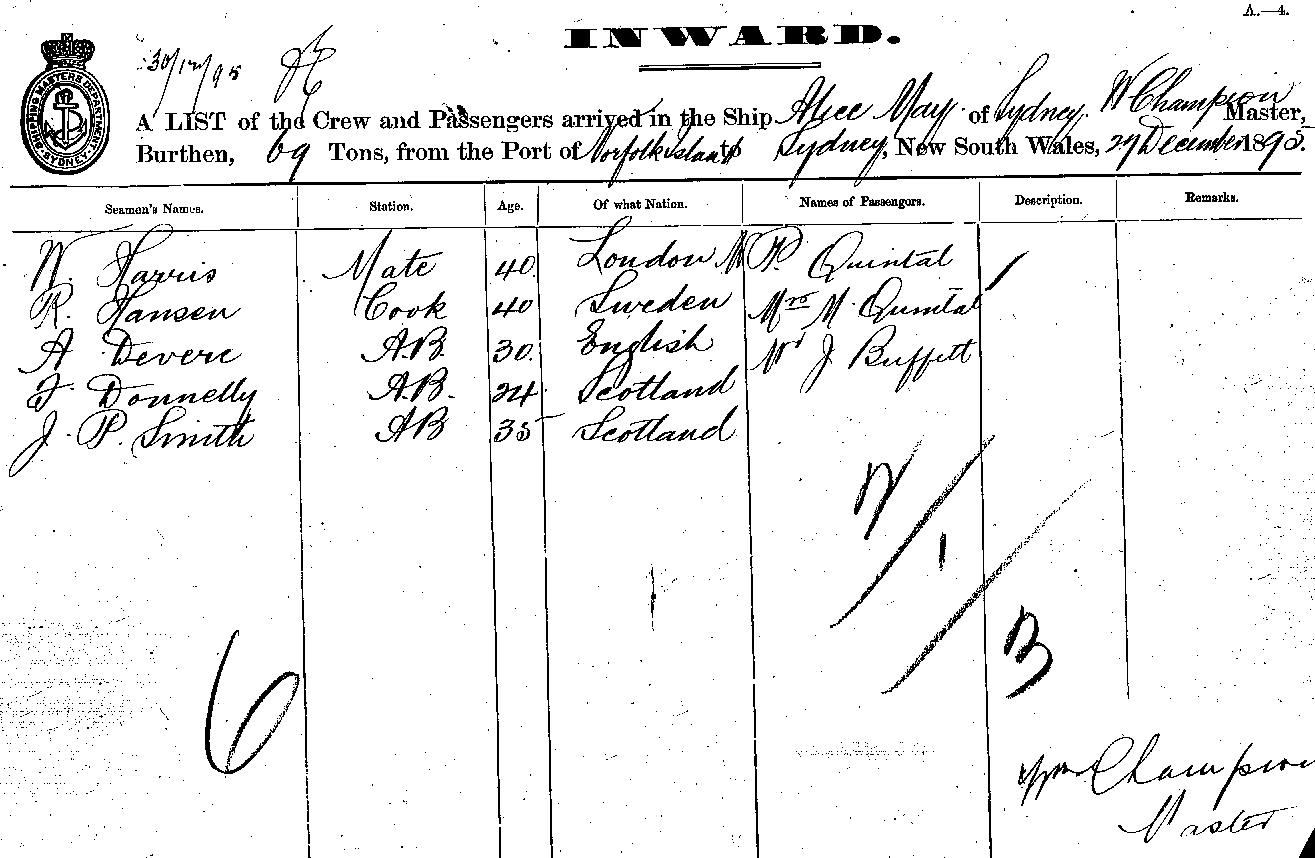 A.—4.
INWARD.
SHIPPING MASTERS DEPARTMENT
SYDNEY
30/12/95
A LIST of the Crew and Passengers arrived in the Ship Alice May of Sydney. W Champion Master,
Burthen, 69 Tons, from the Port of Norfolk Island to Sydney, New South Wales, 29 December 1895.
Seamen's Names. Station. Age. Of what Nation. Names of Passengers. Description. Remarks.
W. Harris Mate 40 London Mr P. Quintal
R. Hansen Cook 40 Sweden Mrs M. Quintal
A Devere A.B. 30 English Mr J Buffett
F. Donnelly A.B. 24 Scotland
J. P. Smith AB 35 Scotland
1
6
Wm Champion
Master